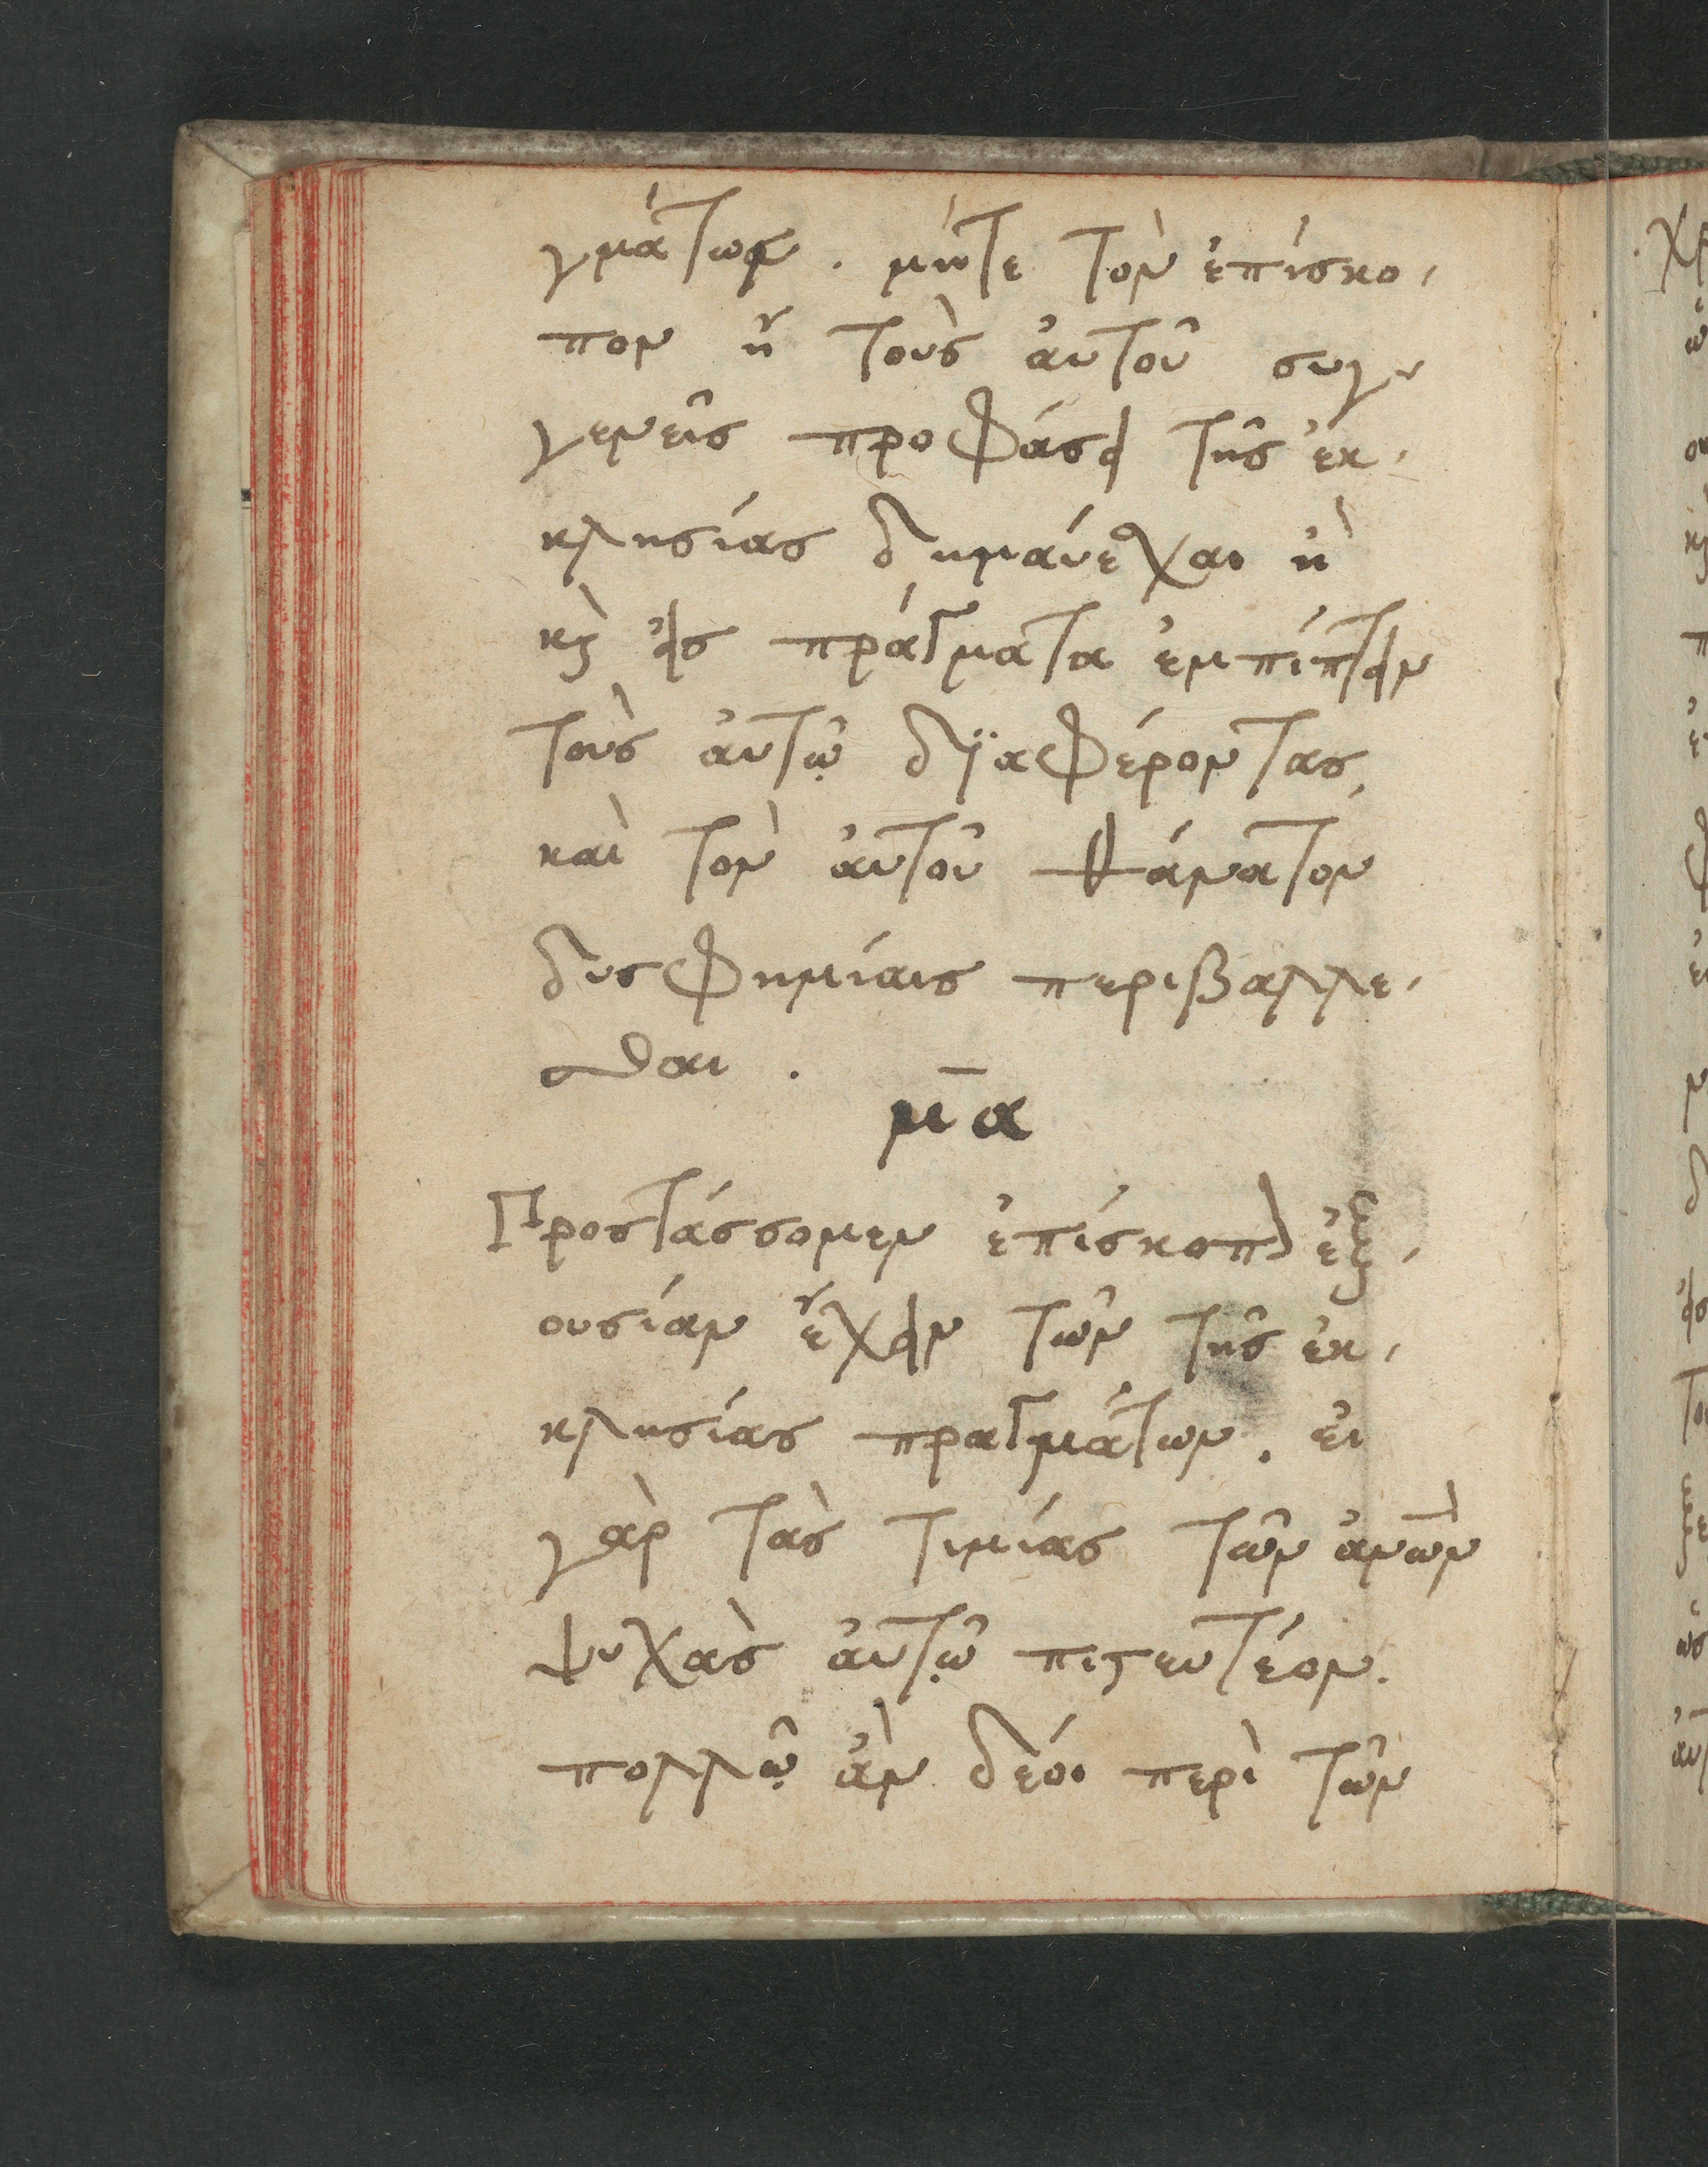 γμάτων. μήτε τὸν ἐπίσκο,
πον ἢ τοὺς ἀυτοῦ συγ,
γενεῖς προφάσει τῆς ἐκ,
κλησίας
κὴ εἰς πράγματα ἐμπίπτειν
τοὺς ἀυτῷ δϊαφέροντας,
καὶ τὸν ἀυτοῦ θάνατον
δυσφημίαις περιβαλλε,
σθαι.
μ̅α
Προστάσσομεν ἐπίσκοπον ἐξ,
ουσίαν ἔχειν τῶν τῆς ἐκ,
κλησίας πραγμάτων. ἐι
γὰρ τὰς τιμίας τῶν ἀν̅ων
ψυχὰς ἀυτῷ πιστευτέον.
πολλῷ ἀν δέοι περὶ τῶν